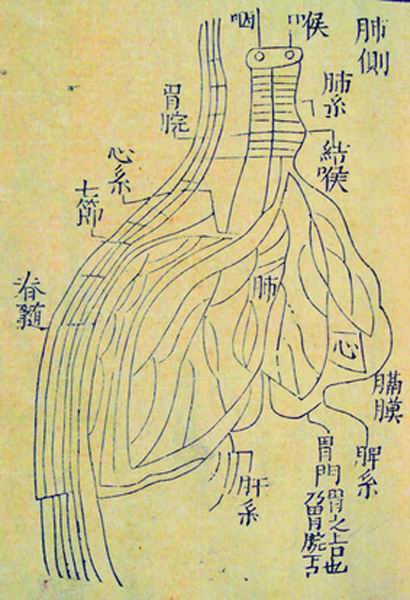 肺側
喉
咽
肺系
結喉
胃脘
心系
七節
脊髓
肺
心
膈膜
脾系
胃門胃之上口也
肝系